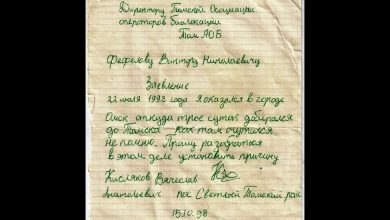 Директору Томской Ассоциации
операторов биолокации
Том АОБ
Фефелову Виктру Николаевичу
Заявление
22 июля 1998 года я оказался в городе
Омск откуда трое суток добирался
до Томска как там очутился
не помню. Прошу разобраться
в этом деле установить причину
Кисляков Вячеслав
Анатольевич пос Светлый Томский рай
15.10.98